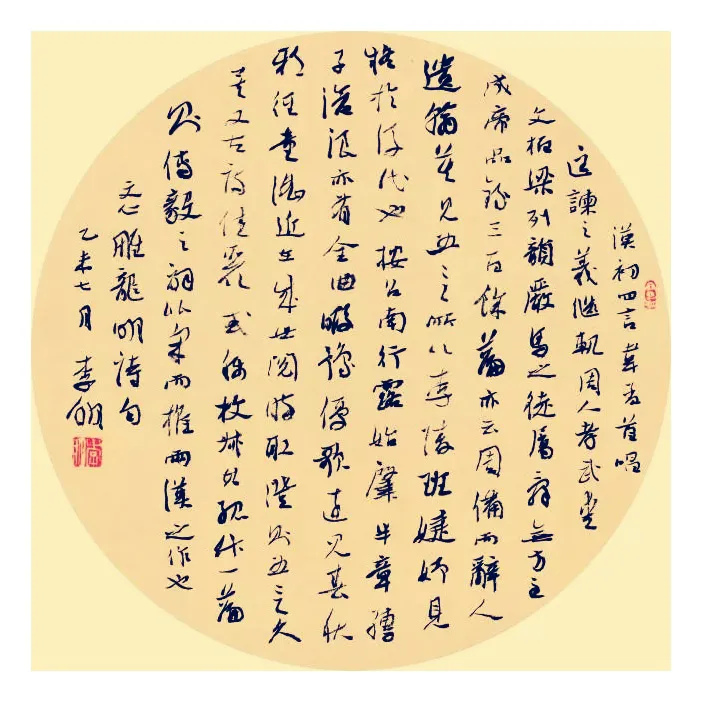 漢初四言韋孟首唱
匡諫之義繼軌周人孝武愛
文柏梁列韻嚴馬之徒屬辭無方至
成帝品錄三百餘篇亦云周備而辭人
遺翰莫見五言所以李陵班婕妤見
疑於後代也按召南行露始肇半章孺
子滄浪亦有全曲暇豫優歌遠見春秋
邪徑童謠近在成世閱時取證則五言久
矣又古詩佳麗或稱枚叔孤竹一篇
則傅毅之詞比采而推兩漢之作也
文心雕龍明詩句
乙未七月 李明